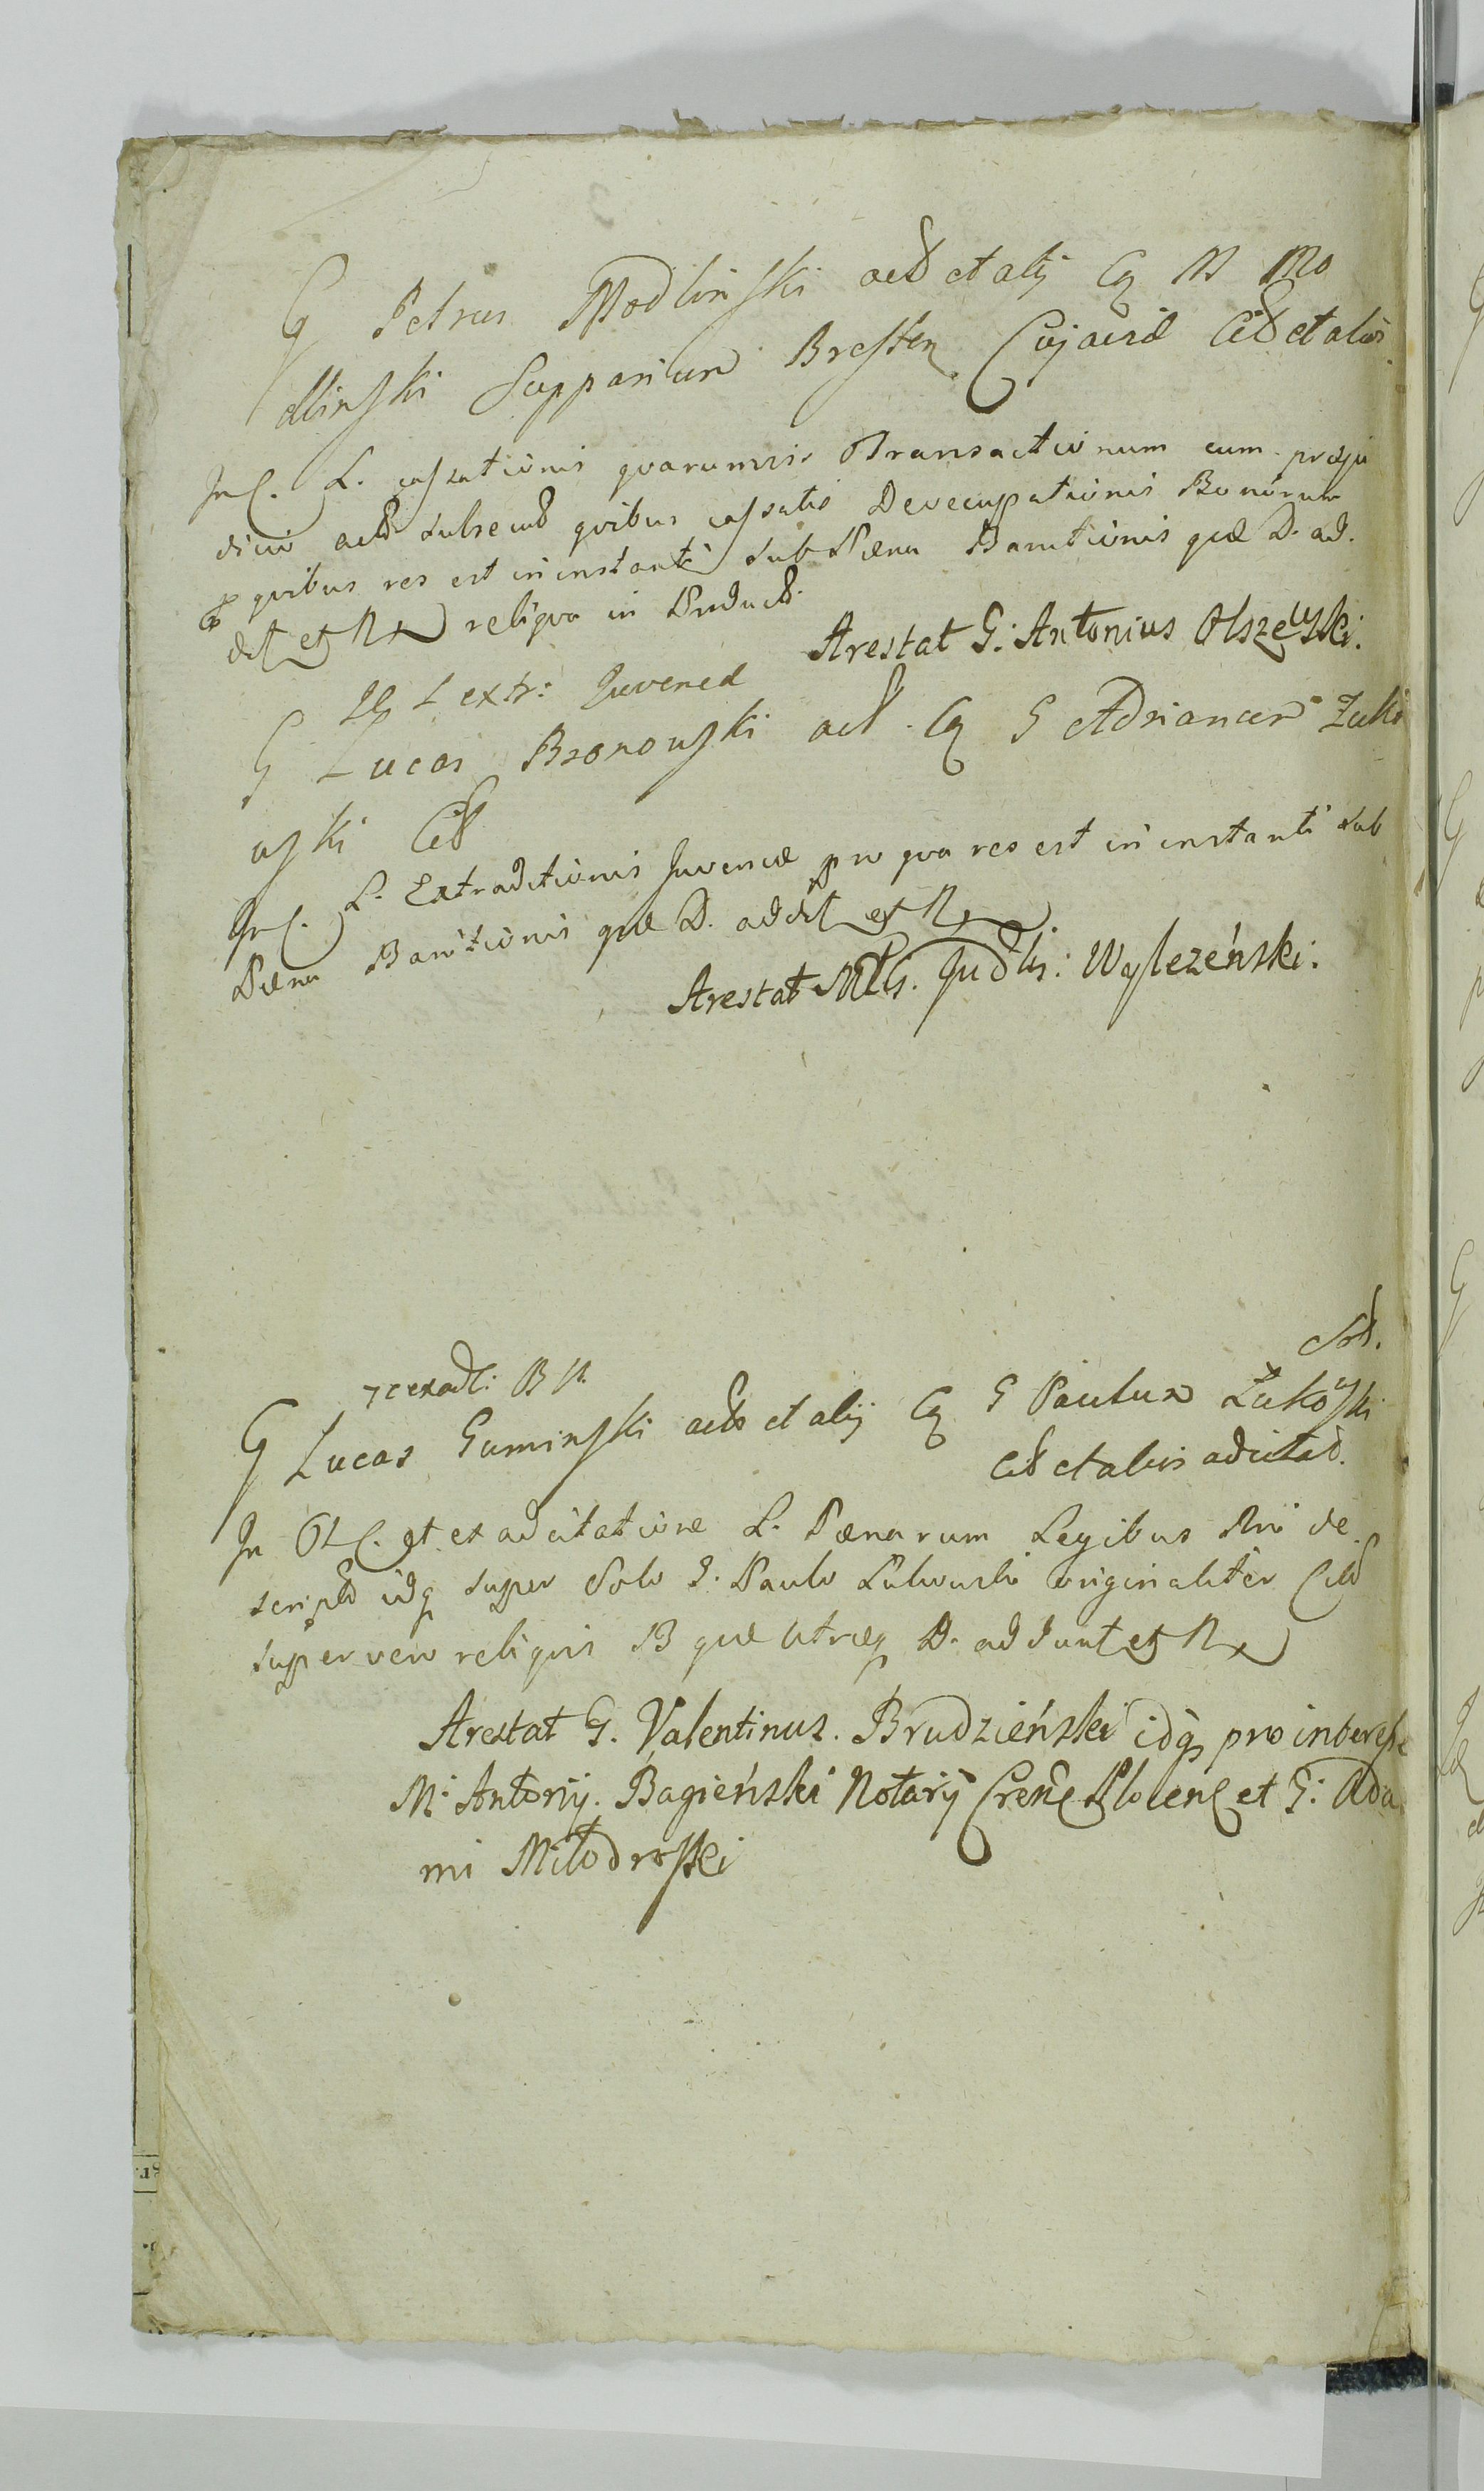 G Petrus Modlinski act et alij Cq M Mo
dlinski Supparium Bresten Cujaviæ Cit et alios
In C. L. cassationis quarumvis Transactionum cum præju
dicio act subsecut quibus cassatis Deoccupationis Bonorum
quibus res est in instanti sub Pæna Banitionis quæ D. ad.
dit et R reliqua in Product.
Arestat G: Antonius Olszewski.
L extr: Juvencæ
G Lucas Bronowski act Cq G Adrianum Zuko
wski Cit
In C. L. Extraditionis Juvencæ pro qua res est in instanti sub
Pæna Banitionis quæ D. addit et R
Arestat MG. Judlis: Węlezeński.
Sod.
G Lucas Guminski act et alij Cq G Paulum Żukowski
Cit et alios adcitat.
In C. et ex adcitatione L. Pænarum Legibus Rni de
script idq super Solo G. Paulo Zukowski originaliter Cit
super vero reliquis B quæ utræq D. addunt et R
Arestat G. Valentinus. Brudzieński idq pro interesse
M. Antonij. Bagieński Notarij Cren Plocen et G: Ada
mi Miłodroski